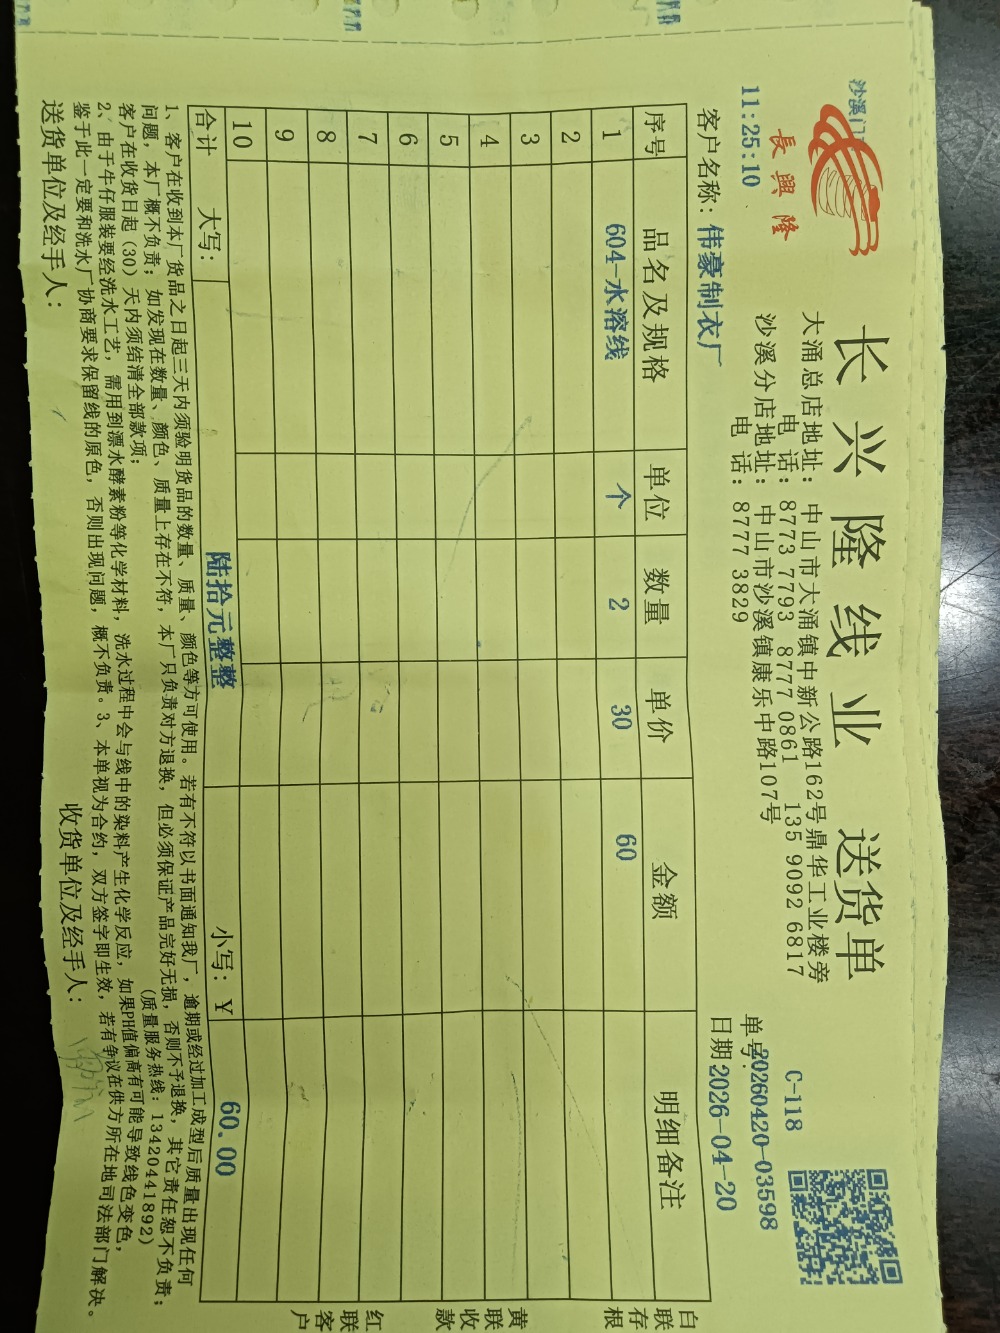 沙溪门
長興隆
长兴隆线业 送货单
大涌总店地址: 中山市大涌镇中新公路162号鼎华工业楼旁
电 话: 8773 7793 8777 0861 135 9092 6817
沙溪分店地址: 中山市沙溪镇康乐中路107号
电 话: 8777 3829
C-118
11:25:10
单号:20260420-03598
客户名称: 伟豪制衣厂
日期 2026-04-20
序号 品名及规格 单位 数量 单价 金额 明细备注
1 604-水溶线 个 2 30 60
2
3
4
5
6
7
8
9
10
合计 大写: 陆拾元整整 小写: ¥ 60.00
白联存根
黄联收款
红联客户
1、客户在收到本厂货品之日起三天内须验明货品的数量、质量、颜色等方可使用。若有不符以书面通知我厂,逾期或经过加工成型后质量出现任何
问题,本厂概不负责;如发现在数量、颜色、质量上存在不符,本厂只负责对方退换,但必须保证产品完好无损,否则不予退换,其它责任恕不负责;
客户在收货日起(30)天内须结清全部款项; (质量服务热线: 13420441892)
2、由于牛仔服装要经洗水工艺,需用到漂水酵素粉等化学材料,洗水过程中会与线中的染料产生化学反应,如果PH值偏高有可能导致线色变色,
鉴于此一定要和洗水厂协商要求保留线的原色,否则出现问题,概不负责。3、本单视为合约,双方签字即生效,若有争议在供方所在地司法部门解决。
送货单位及经手人: 收货单位及经手人: